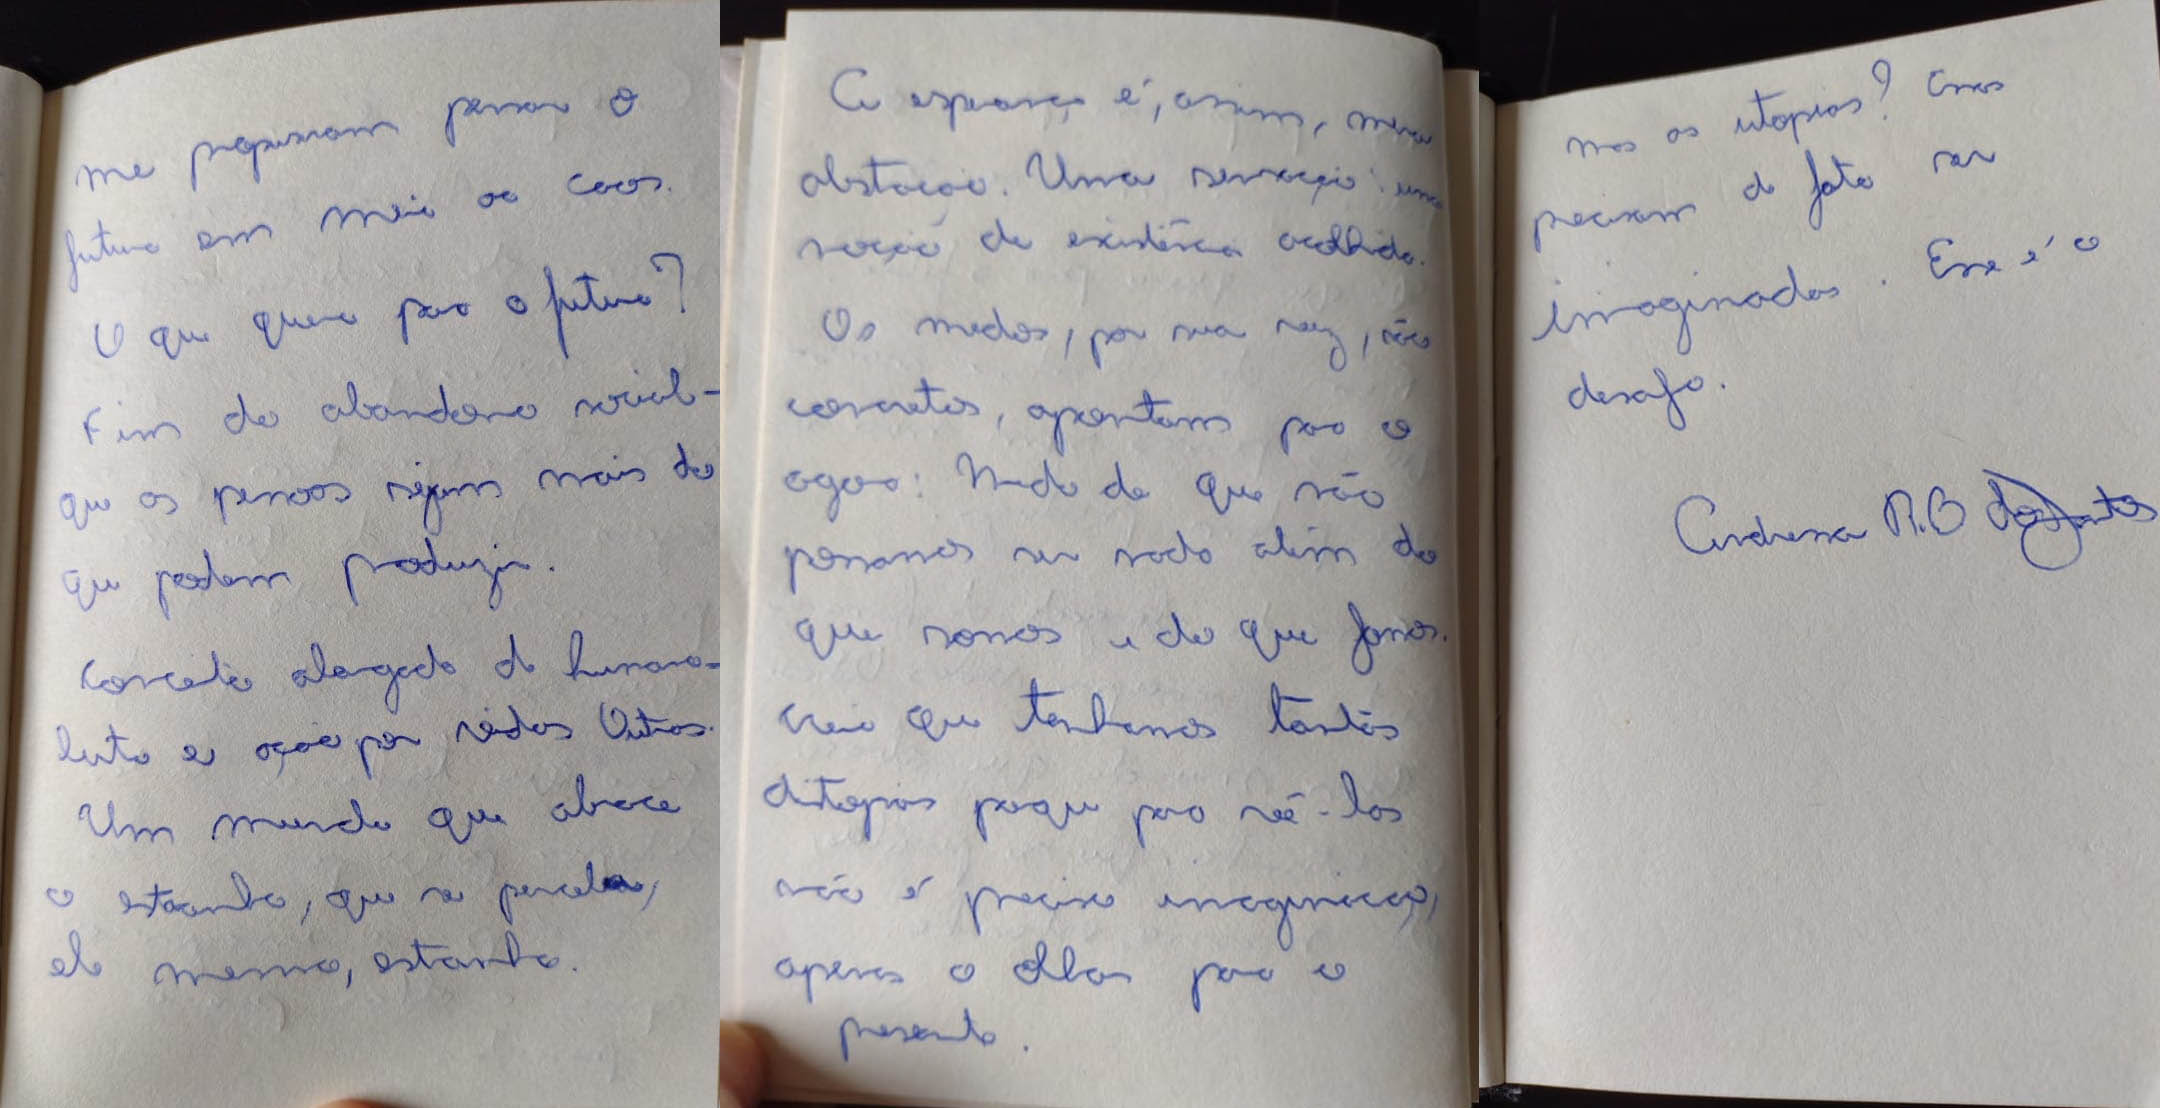 me propuseram pensar o
futuro em meio ao caos.
O que quero para o futuro?
Fim do abandono social -
que as pessoas sejam mais do
que podem produzir.
Conceito alargado de humano -
luto e ação por vidas Outras.
Um mundo que abrace
o estranho, que se perceba,
ele mesmo, estranho.
A esperança é, assim, mera
abstração. Uma sensação: uma
noção de existência acolhida.
Os medos, por sua vez, são
concretos, apontam para o
agora: Medo de que não
possamos ser nada além do
que somos e do que fomos.
Creio que tenhamos tantas
distopias porque para vê-las
não é preciso imaginação,
apenas o olhar para o
presente.
mas as utopias? Essas
precisam de fato ser
imaginadas. Esse é o
desafio.
Andressa R.O dos Santos